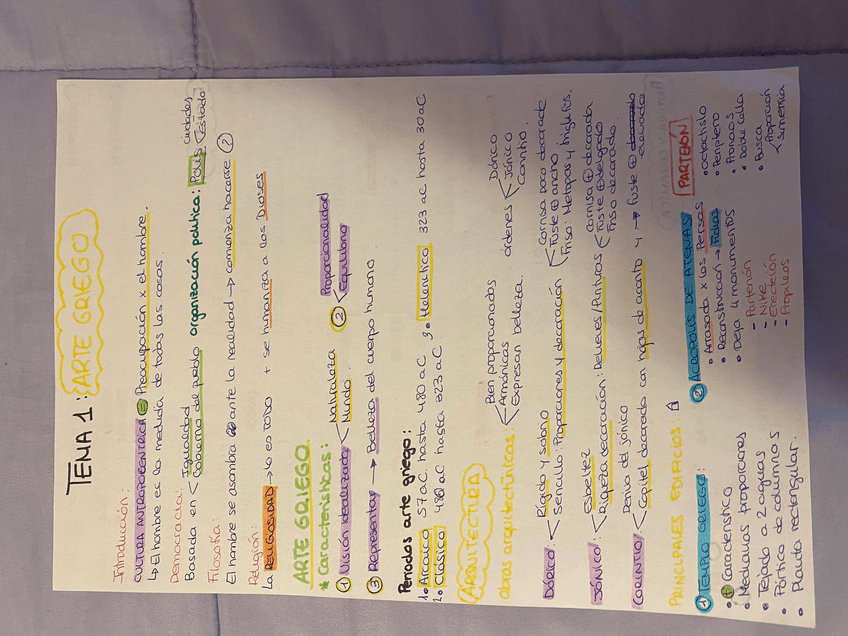 TEMA 1: ARTE GRIEGO
Introducción:
CULTURA ANTROPOCENTRICA = Preocupación x el hombre.
↳ El hombre es la medida de todas las cosas.
Democracia:
Basada en < Igualdad
Gobierno del pueblo
organización política: POLIS < ciudades
Estado
Filosofía:
El hombre se asombra ante la realidad → comienza hacerse ?
Religión:
La RELIGIOSIDAD → lo es TODO + se humaniza a los Dioses
ARTE GRIEGO
* Características:
① Visión idealizada < Naturaleza
Mundo.
② < Proporcionalidad
Equilibrio
③ Representar → Belleza del cuerpo humano
Periodos arte griego:
1º Arcaico S7 a.C. hasta 480 aC
2º Clásico 480 aC hasta 323 aC
3º Helenístico 323 aC hasta 30 aC
ARQUITECTURA
Obras arquitectónicas: < Bien proporcionados
Armónicas
Expresan belleza.
órdenes < Dórico
Jónico
Corintio
DÓRICO: < Rígido y sobrio
Sencillo Proporciones y decoración < Cornisa poco decorada
Fuste ⊕ ancho
Friso: Metopas y triglifos.
JÓNICO: < Esbeltez
Riqueza decoración: Relieves/Pinturas < Cornisa ⊕ decorada
Fuste ⊕ delgado
Friso decorado
CORINTIO < Deriva del jónico
Capitel decorado con hojas de acanto y → fuste ⊕ decorado
PRINCIPALES EDIFICIOS:
① TEMPLO GRIEGO:
• ⊕ Característico
• Medianas proporciones
• Tejado a 2 aguas
• Pórtico de columnas
• Planta rectangular.
② ACRÓPOLIS DE ATENAS
• Arrasada x los Persas
• Reconstrucción → Fidias
• Deja 4 monumentos
- Partenón
- Nike
- Erecteión
- Propileos
PARTEÓN
• Octástilo
• Periptero
• Pronaos
• Doble cella
• Busca < Proporción
Simetría